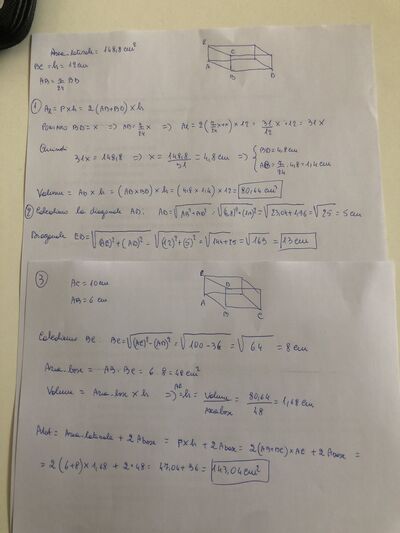 Area laterale = 148,8 cm²
BC = h = 12 cm
AB = 7/24 BD
E
C
A
B
D
① Al = P x h = 2(AB+BD) x h
Poniamo BD = x => AB = 7/24 x => Al = 2(7/24 x + x) x 12 = 31/12 x · 12 = 31x
Quindi
31x = 148,8 => x = 148,8/31 = 4,8 cm => { BD = 4,8 cm
AB = 7/24 · 4,8 = 1,4 cm
Volume = Ab x h = (AB x BD) x h = (4,8 x 1,4) x 12 = 80,64 cm³
② Calcoliamo la diagonale AD: AD = √(AB)²+(BD)² = √(4,8)²+(1,4)² = √23,04+1,96 = √25 = 5 cm
Diagonale ED = √(BC)²+(AD)² = √(12)²+(5)² = √144+25 = √169 = 13 cm
③
AC = 10 cm
AB = 6 cm
E
D
A
B
C
Calcoliamo BC: BC = √(AC)²-(AB)² = √100-36 = √64 = 8 cm
Area base = AB · BC = 6 · 8 = 48 cm²
Volume = Area base x h => AE = h = Volume/Area base = 80,64/48 = 1,68 cm
Atot = Area laterale + 2 Abase = P x h + 2 Abase = 2(AB+BC) x AE + 2 Abase =
= 2(6+8) x 1,68 + 2 · 48 = 47,04 + 96 = 143,04 cm²